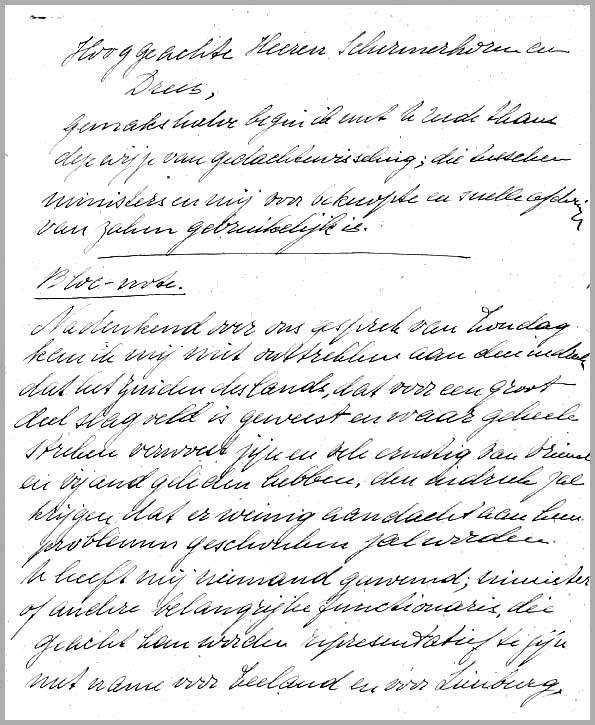 Hooggeachte Heeren Schermerhorn en
Drees,
gemakshalve begin ik met U reeds thans
deze wijze van gedachtenwisseling, die tusschen
ministers en mij voor beknopte en snelle afdoening
van zaken gebruikelijk is.
Bloc-note.
Nadenkend over ons gesprek van Zondag
kan ik mij niet onttrekken aan den indruk
dat het Zuiden des lands, dat voor een groot
deel slagveld is geweest en waar geheele
streken verwoest zijn en vele ernstig van vriend
en vijand geleden hebben, den indruk zal
krijgen dat er weinig aandacht aan hun
problemen geschonken zal worden.
U heeft mij niemand genoemd, minister
of andere belangrijke functionaris, die
geacht kan worden representatief te zijn
met name voor Zeeland en voor Limburg.